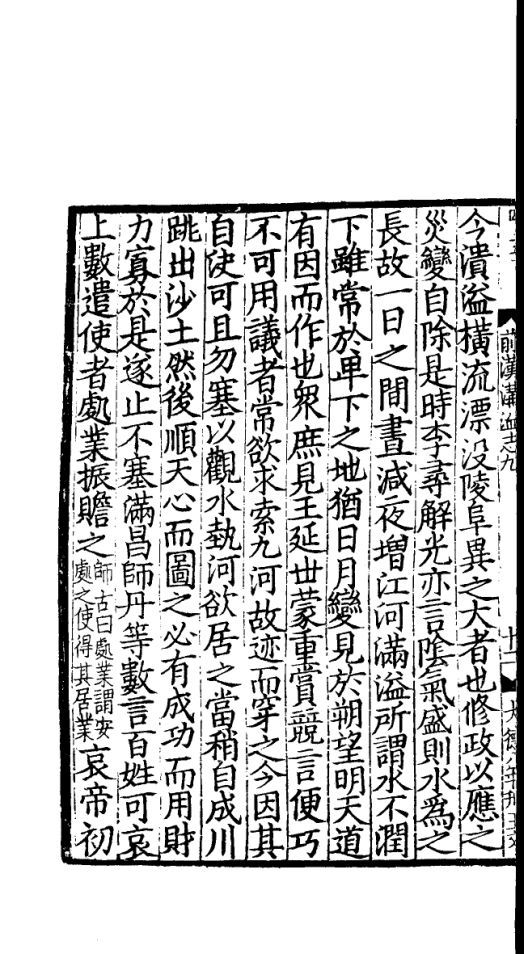 今潰溢橫流漂没陵阜異之大者也修政以應之
災變自除是時李尋解光亦言陰氣盛則水爲之
長故一日之間晝減夜增江河滿溢所謂水不潤
下雖常於卑下之地猶日月變見於朔望明天道
有因而作也衆庶見王延丗蒙重賞競言便巧
不可用議者常欲求索九河故迹而穿之今因其
自決可且勿塞以觀水埶河欲居之當稍自成川
跳出沙土然後順天心而圖之必有成功而用財
力寡於是遂止不塞滿昌師丹等數言百姓可哀
上數遣使者處業振贍之師古曰處業謂安處之使得其居業哀帝初
前漢溝洫志九
十二